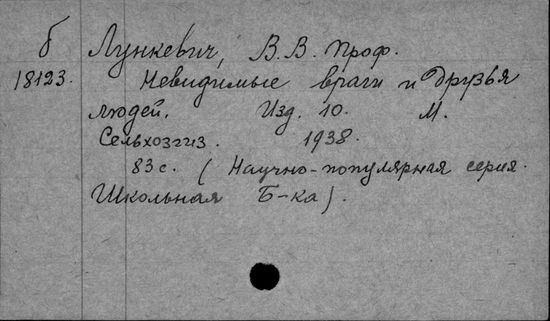 б Лункевич, В.В. проф.
18123. Невидимые враги и друзья
людей. Изд. 10. М.
Сельхозгиз. 1938.
83 с. (Научно-популярная серия.
Школьная Б-ка).